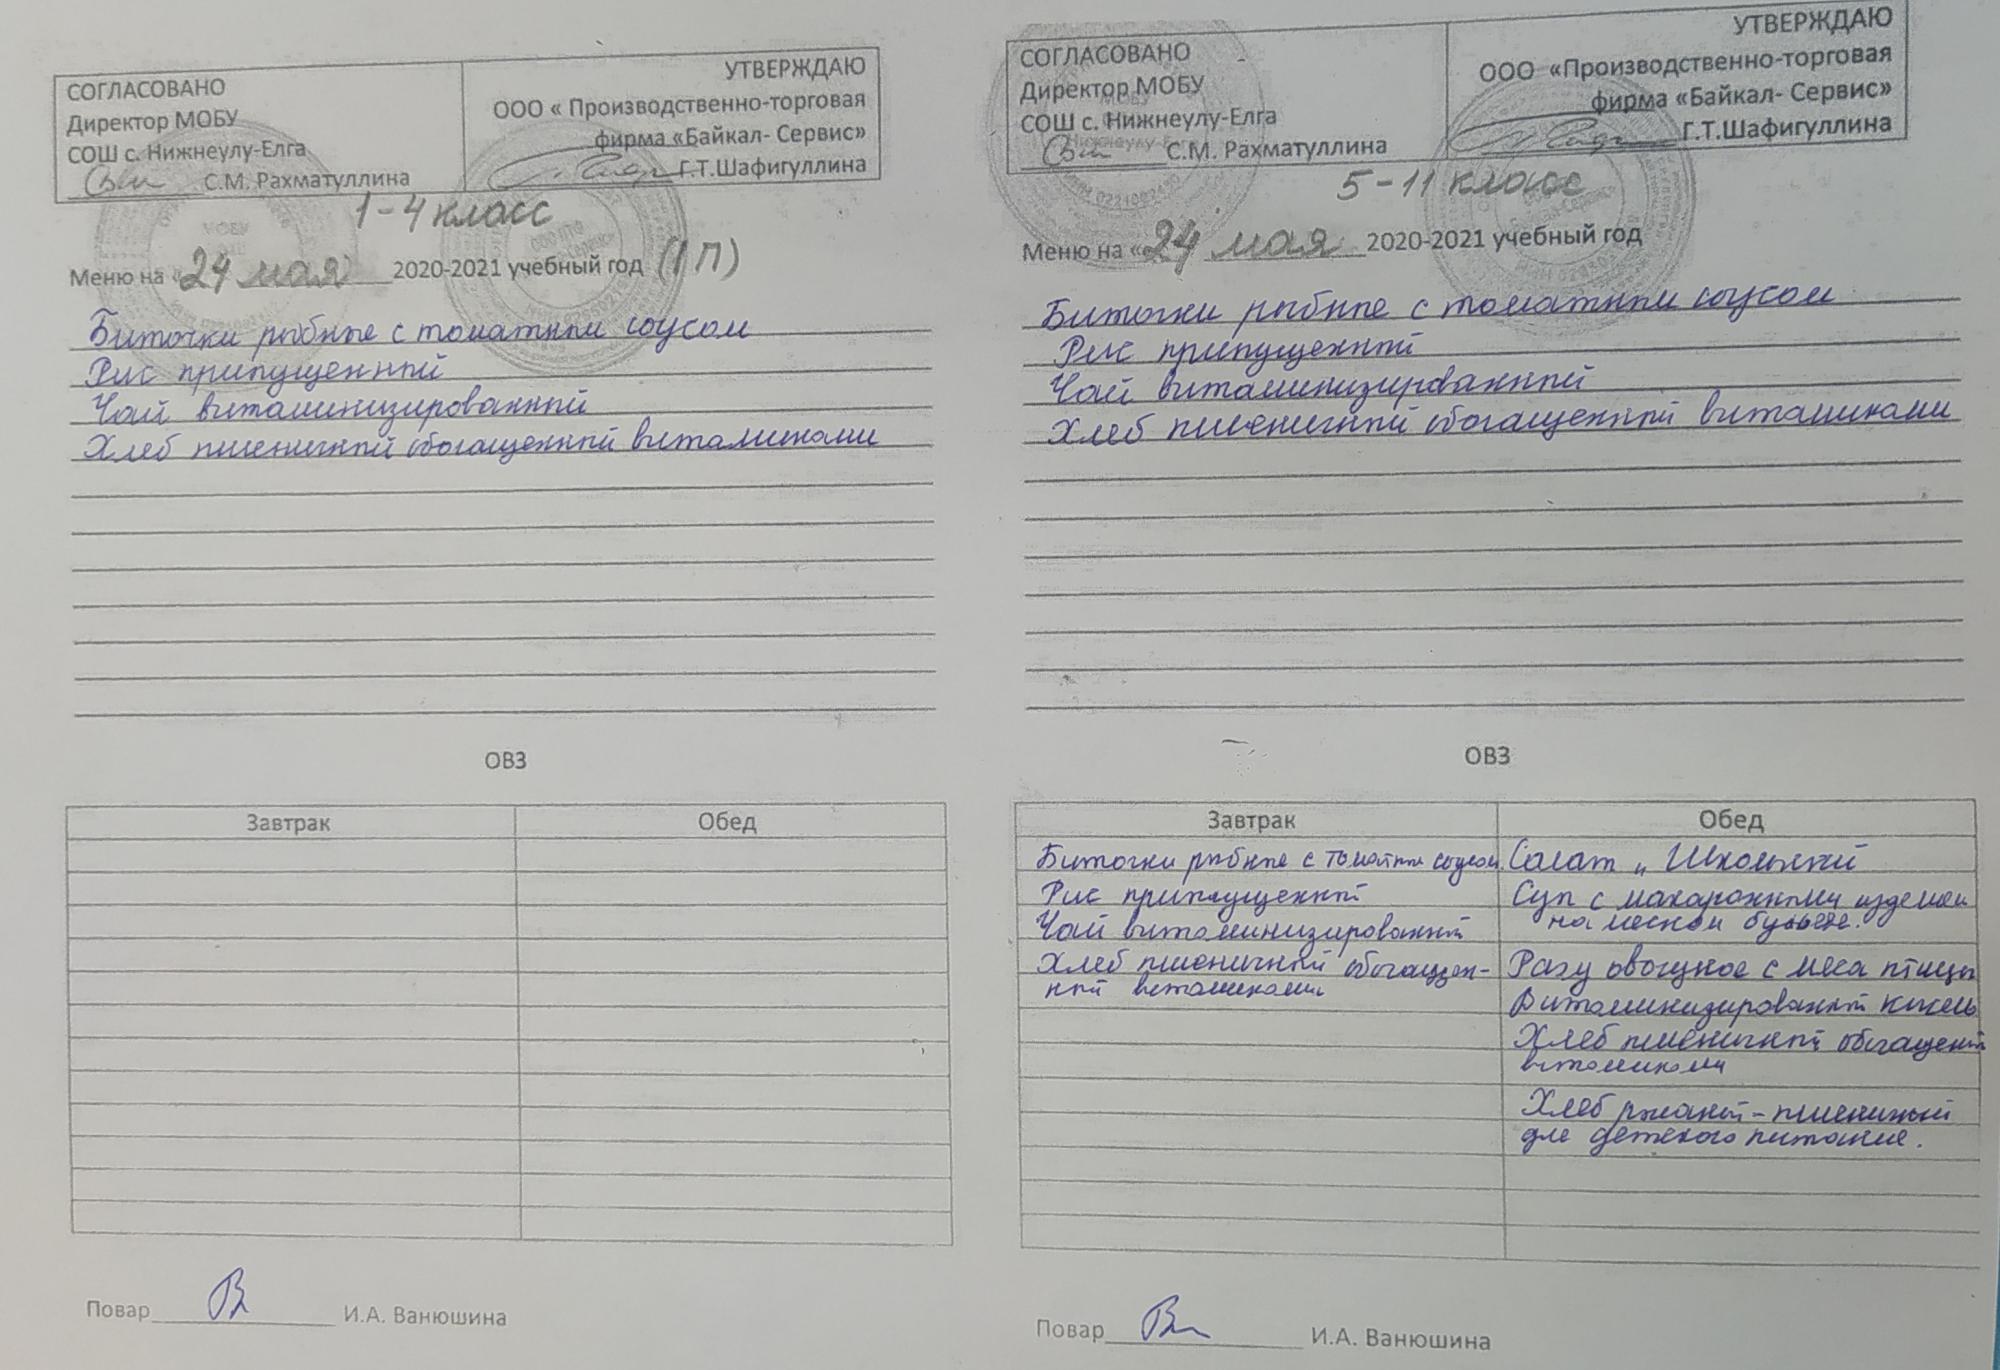 СОГЛАСОВАНО
Директор МОБУ
СОШ с. Нижнеулу-Елга
С.М. Рахматуллина
УТВЕРЖДАЮ
ООО « Производственно-торговая
фирма «Байкал- Сервис»
Г.Т.Шафигуллина
1-4 класс
Меню на «24 мая 2020-2021 учебный год (1 П)
Биточки рыбные с томатным соусом
Рис припущенный
Чай витаминизированный
Хлеб пшеничный обогащенный витаминами
ОВЗ
Завтрак Обед
Повар И.А. Ванюшина
СОГЛАСОВАНО
Директор МОБУ
СОШ с. Нижнеулу-Елга
С.М. Рахматуллина
УТВЕРЖДАЮ
ООО «Производственно-торговая
фирма «Байкал- Сервис»
Г.Т.Шафигуллина
5-11 класс
Меню на «24 мая 2020-2021 учебный год
Биточки рыбные с томатным соусом
Рис припущенный
Чай витаминизированный
Хлеб пшеничный обогащенный витаминами
ОВЗ
Завтрак
Биточки рыбные с томатным соусом
Рис припущенный
Чай витаминизированный
Хлеб пшеничный обогащен-
ный витаминами
Обед
Салат „ Школьный
Суп с макаронными изделиями
на мясном бульоне.
Рагу овощное с мяса птицы
Витаминизированный кисель
Хлеб пшеничный обогащенный
витаминами
Хлеб ржаной-пшеничный
для детского питание.
Повар И.А. Ванюшина